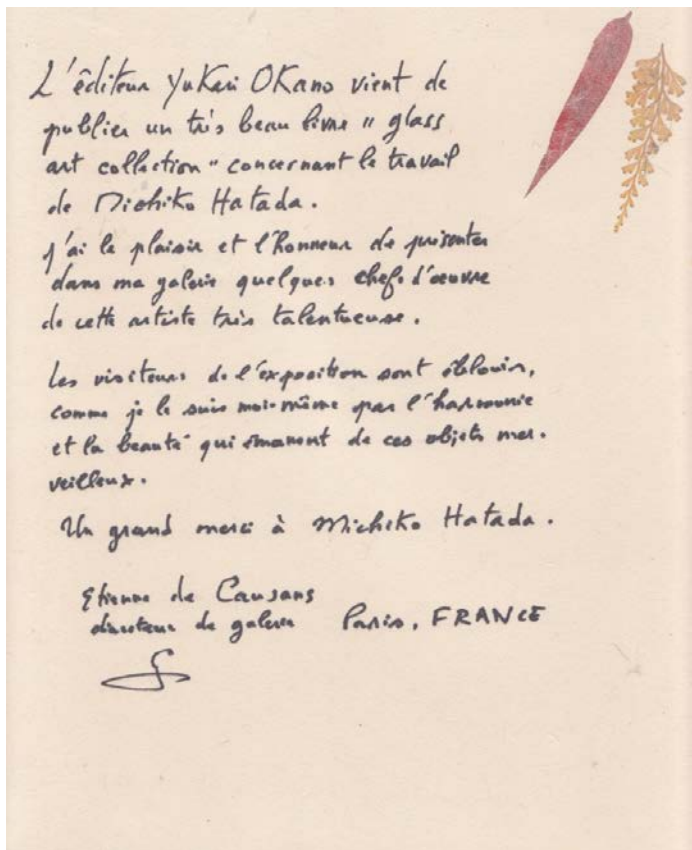 L'éditeur Yukari Okano vient de
publier un très beau livre "glass
art collection" concernant le travail
de Michiko Hatada.
J'ai le plaisir et l'honneur de présenter
dans ma galerie quelques chefs d'œuvre
de cette artiste très talentueuse.
Les visiteurs de l'exposition sont éblouis,
comme je le suis moi-même par l'harmonie
et la beauté qui émanent de ces objets mer-
veilleux.
Un grand merci à Michiko Hatada.
Etienne de Causans
directeur de galerie Paris, FRANCE